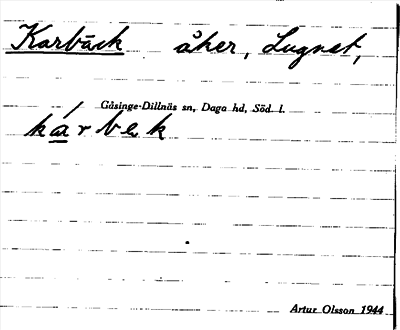 Karbäck åker, Lugnet,
Gåsinge-Dillnäs sn, Daga hd, Söd. l.
kárbek
Artur Olsson 1944